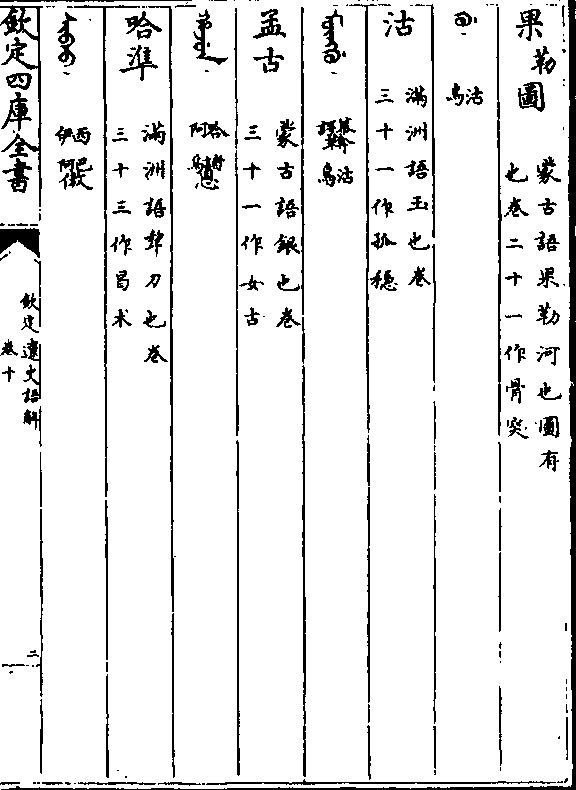 果勒圖
蒙古語果勒河也圖有
也卷二十一作骨突
沽烏
沽
滿洲語玉也卷
三十一作孤穩
沽烏
孟古
蒙古語銀也卷
三十一作女古
哈阿
哈準
滿洲語犂刀也卷
三十三作曷朮
西伊
巴阿
欽定四庫全書
欽定遼史語解
卷十
二